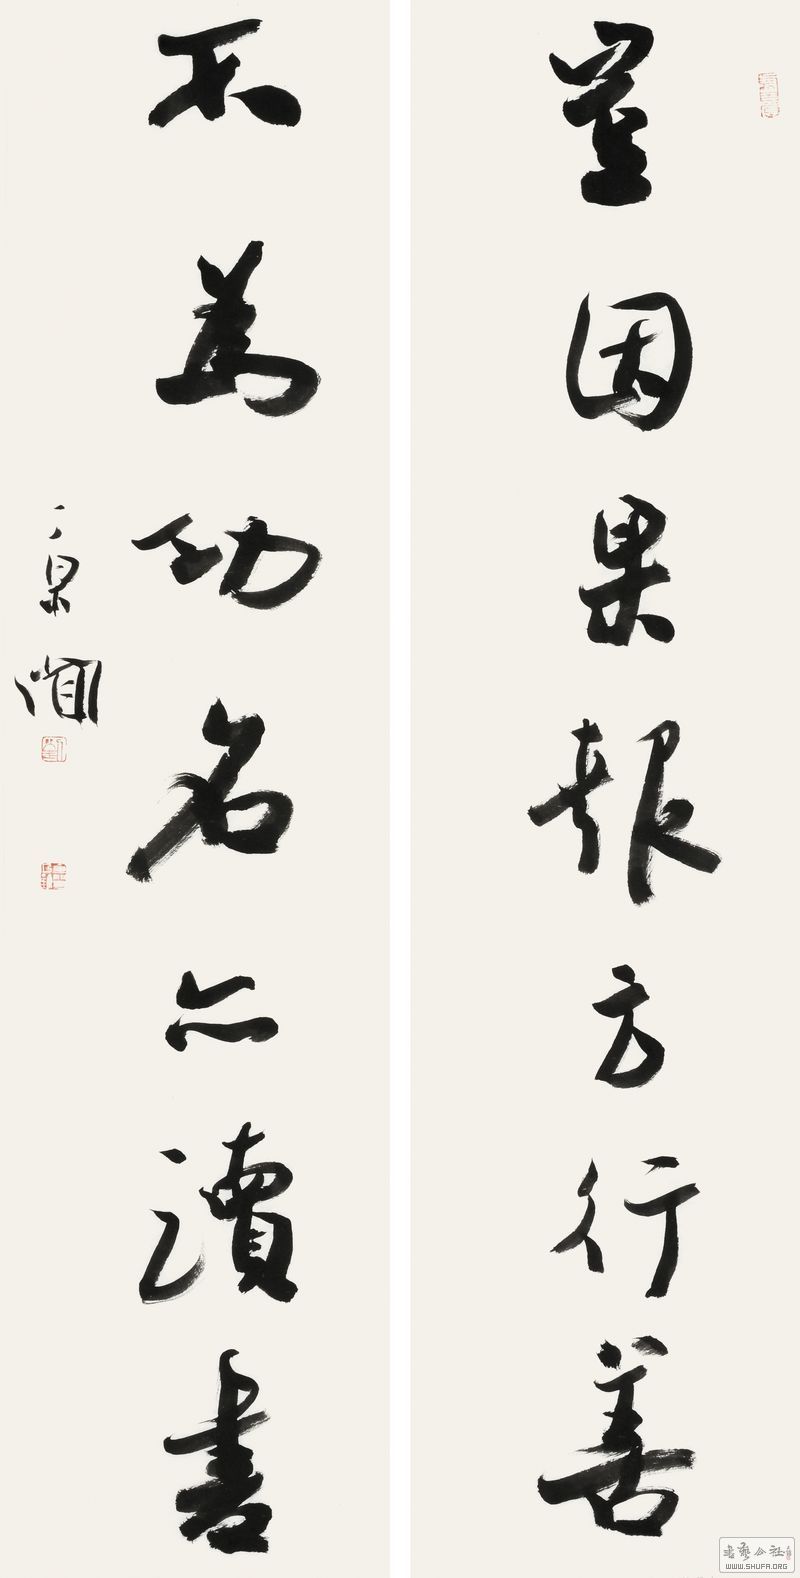 豈因果報方行善
不為功名亦讀書
书艺公社
WWW.SHUFA.ORG